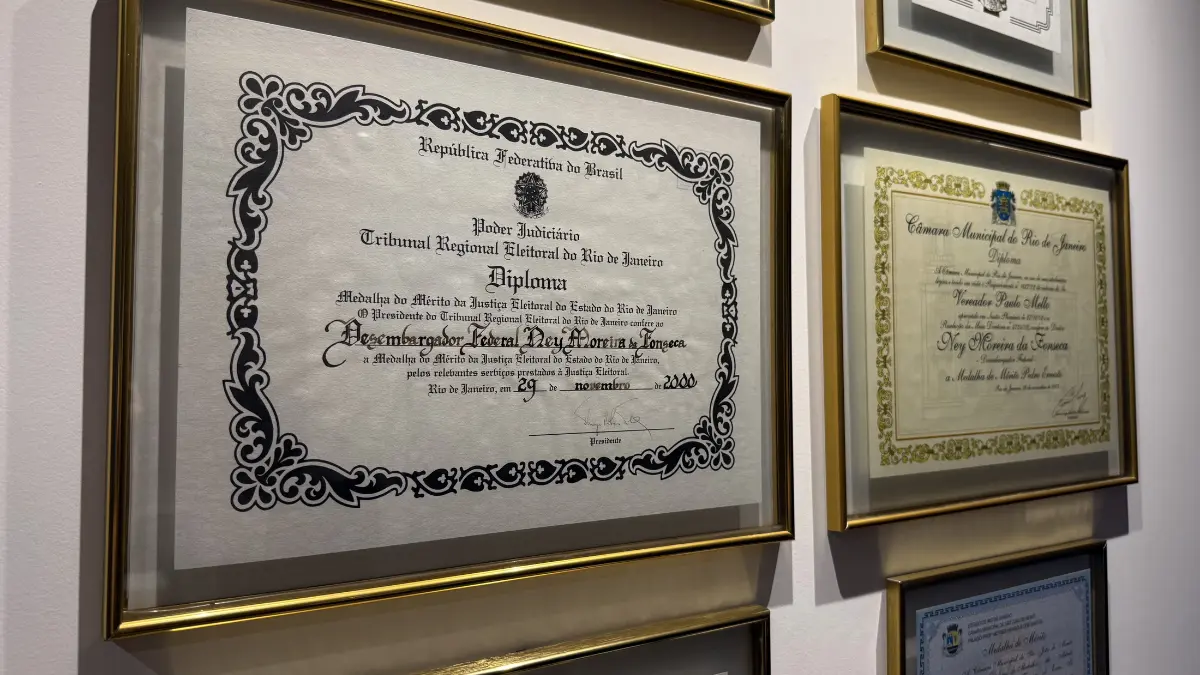 República Federativa do Brasil
Poder Judiciário
Tribunal Regional Eleitoral do Rio de Janeiro
Diploma
Medalha do Mérito da Justiça Eleitoral do Estado do Rio de Janeiro
O Presidente do Tribunal Regional Eleitoral do Rio de Janeiro confere ao
Desembargador Federal Ney Moreira da Fonseca
a Medalha do Mérito da Justiça Eleitoral do Estado do Rio de Janeiro,
pelos relevantes serviços prestados à Justiça Eleitoral.
Rio de Janeiro, em 29 de novembro de 2000
Presidente
Câmara Municipal do Rio de Janeiro
Diploma
A Câmara Municipal do Rio de Janeiro,
Vereador Paulo Mello
Ney Moreira da Fonseca
Desembargador Federal
a Medalha de Mérito Pedro Ernesto
Medalha de Mérito